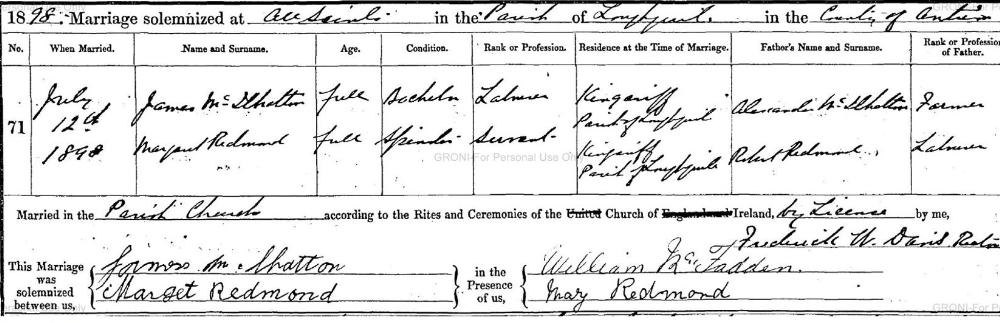 1898. Marriage solemnized at All Saints in the Parish of Loughguile in the County of Antrim
No. When Married. Name and Surname. Age. Condition. Rank or Profession. Residence at the Time of Marriage. Father's Name and Surname. Rank or Profession of Father.
71 July 12th 1898 James McIlhatton full Bachelor Labourer Kingariff Parish of Loughguile Alexander McIlhatton Farmer
Margaret Redmond full Spinster Servant Kingariff Parish of Loughguile Robert Redmond Labourer
GRONI For Personal Use On
Married in the Parish Church according to the Rites and Ceremonies of the United Church of England and Ireland, by License by me,
Frederick W. Davis Rector
This Marriage was solemnized between us, James McIlhatton in the Presence of us, William McFadden.
Marget Redmond Mary Redmond
GRONI-For P